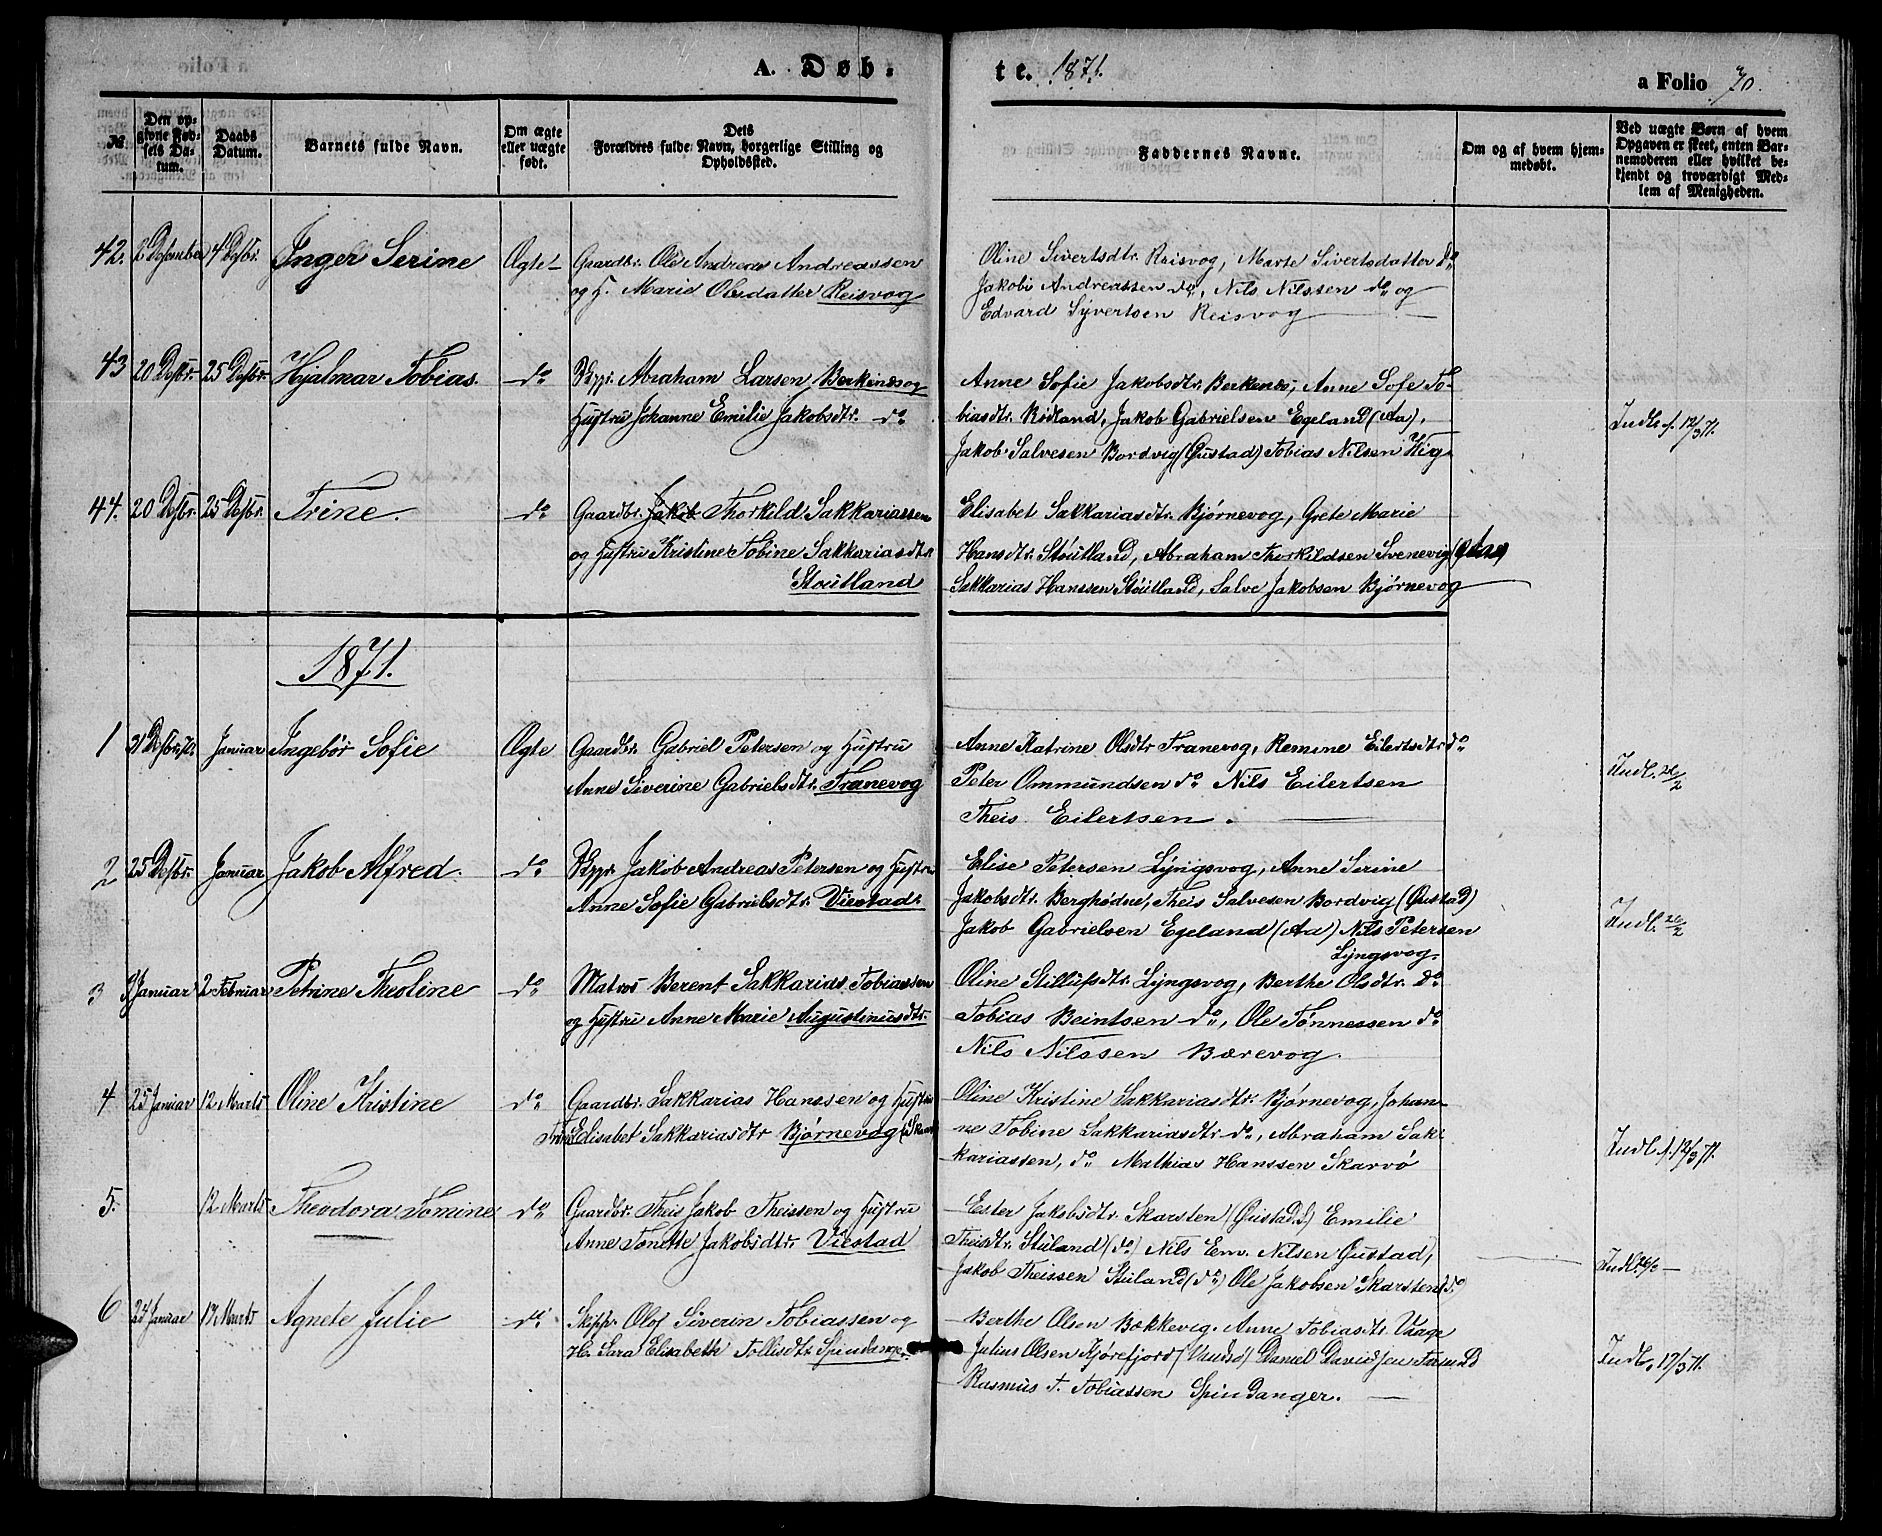 A. Døb-
te. 1871.
a Folio 70.
№
Den opgivne Fødsels Datum.
Daabs Datum.
Barnets fulde Navn.
Om ægte eller uægte født.
Dets Forældres fulde Navn, borgerlige Stilling og Opholdssted.
Faddernes Navne.
Om og af hvem hjemmedøbt.
Ved uægte Børn af hvem Opgaven er skeet, enten Barnemoderen eller hvilket bekjendt og troværdigt Medlem af Menigheden.
42. 2 Desember 4 Desbr. Inger Serine Ægte Gaardbr. Ole Andreas Andreassen
og H. Marie Olesdatter Reisvog
Oline Sivertsdtr. Reisvog, Marte Sivertsdatter do
Jakob Andreassen do, Nils Nilssen do og
Edvard Syvertsen Reisvog
43 20 Desbr. 25 Desbr. Hjalmar Tobias. do Abraham Larsen Berkenes og
Hustru Johanne Emilie Jakobsdtr. do
Anne Sofie Jakobsdtr. Berkenes, Anne Sofe To-
biasdtr. Rødland, Jakob Gabrielsen Egeland (Aa),
Jakob Salvesen Bordvig (Øustad) Tobias Nilsen Kig
Indb. f. 12/3 71.
44. 20 Desbr. 25 Desbr. Trine. do Gaardbr. Jakob Thorkild Sakkariassen
og Hustru Kristine Tobine Sakkariasdtr.
Stoutland
Elisabet Sakkariasdtr. Bjørnevog, Grete Marie
Hansdtr. Støutland, Abraham Thorkildsen Svenevig
Sakkarias Hanssen Støutland, Salve Jakobsen Bjørnevog
1871.
1 31 Desbr. 70 Januar Ingebør Sofie Ægte Gaardbr. Gabriel Petersen og Hustru
Anne Siverine Gabrielsdtr. Tranevog
Anne Katrine Olsdtr Tranevog, Remine Eilertsdtr do
Peter Ommundsen do Nils Eilertsen
Theis Eilertsen.
Indl. 26/2
2 25 Desbr. Januar Jakob Alfred. do Jakob Andreas Petersen og Hustru
Anne Sofie Gabrielsdtr. Viestad.
Elise Petersen Lyngsvog, Anne Serine
Jakobsdtr. Berghødne, Theis Salvesen Bordvig (Øustad)
Jakob Gabrielsen Egeland (Aa) Nils Petersen
Lyngsvog.
Indl. 26/2
3 Januar 2 Februar Petrine Theoline do Matros Berent Sakkarias Tobiassen
og Hustru Anne Marie Augustinusdtr.
Oline Stillufsdtr. Lyngsvog, Berthe Olsdtr. do
Tobias Beintsen do, Ole Tønnessen do
Nils Nilssen Bærevog.
4 25 Januar 12 Marts Oline Kristine do Gaardbr. Sakkarias Hanssen og Hustru
Trine Elisabet Sakkariasdtr Bjørnevog
Oline Kristine Sakkariasdtr. Bjørnevog, Johan-
ne Tobine Sakkariasdtr do, Abraham Sak-
kariassen, do Mathias Hanssen Skarvø
Indl. f. 12/3 71.
5. 12 Marts Theodora Tomine do Gaardbr. Theis Jakob Theissen og Hustru
Anne Tonette Jakobsdtr. Viestad
Ester Jakobsdtr. Skarsten (Øustad) Emilie
Theisdtr. Stuland (do) Nils Em. Nilsen Øustad,
Jakob Theissen Stuland (do) Ole Jakobsen Skarsten (do)
Indl.
6 24 Januar 17 Marts Agnete Julie do Skipp. Olof Siverin Tobiassen og
H. Sara Elisabeth Tollisdtr. Spindanger
Berthe Olsen Bækkevig. Anne Tobiasdtr. Vaage
Julius Olsen Kjørefjord (Vandsø) Daniel Davidsen Farsund
Rasmus T. Tobiassen Spindanger.
Indb. 17/3 71.